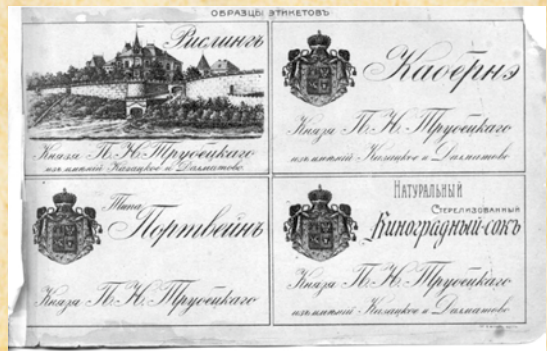 ОБРАЗЦЫ ЭТИКЕТОВЪ
Рислингъ
Князя П. Н. Трубецкаго
изъ имѣній Казацкое и Долматово
Каберне
Князя П. Н. Трубецкаго
изъ имѣній Казацкое и Долматово
Типа
Портвейнъ
Князя П. Н. Трубецкаго
НАТУРАЛЬНЫЙ
СТЕРЕЛИЗОВАННЫЙ
Виноградный-сокъ
Князя П. Н. Трубецкаго
изъ имѣній Казацкое и Долматово